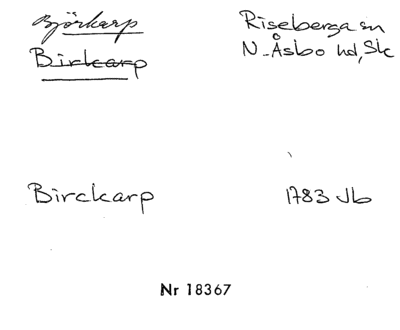 Björkarp Riseberga sn
Birkarp N. Åsbo hd, Sk
Birckarp 1783 Jb
Nr 18367